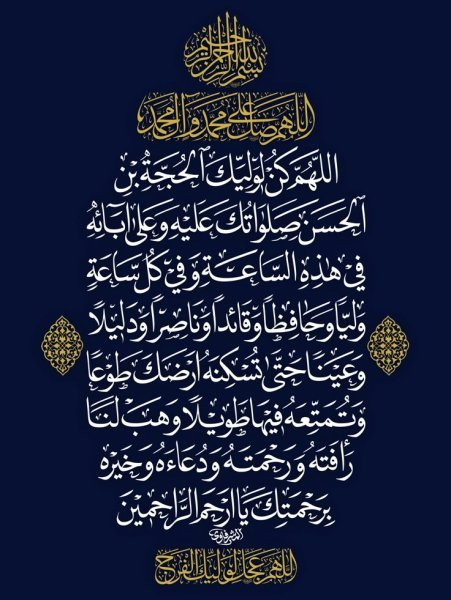 بِسْمِ اللهِ الرَّحْمٰنِ الرَّحِيمِ
اللهم صل على محمد وآل محمد
اللهُمَّ كُنْ لِوَلِيِّكَ الْحُجَّةِ بْنِ
الْحَسَنِ صَلَوَاتُكَ عَلَيْهِ وَعَلىٰ آبَائِهِ
فِي هٰذِهِ السَّاعَةِ وَفِي كُلِّ سَاعَةٍ
وَلِيًّا وَحَافِظاً وَقَائِداً وَنَاصِراً وَدَلِيْلًا
وَعَيْنًا حَتّىٰ تُسْكِنَهُ أَرْضَكَ طَوْعًا
وَتُمَتِّعَهُ فِيهَا طَوِيْلًا وَهَبْ لَنَا
رَأفَتَهُ وَرَحْمَتَهُ وَدُعَاءَهُ وَخَيْرَهُ
بِرَحْمَتِكَ يَا أرْحَمَ الرَّاحِمِيْنَ
اللهم عجل لوليك الفرج